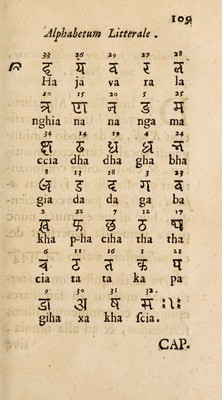 109
Alphabetum Litterale .
33 26 29 27 28
ह य व र ल
Ha ja va ra la
10 15 20 5 25
ञ ण न ङ म
nghia na na nga ma
34 14 19 4 24
क्ष ढ ध घ भ
ccia dha dha gha bha
8 13 18 3 23
ज ड द ग ब
gia da da ga ba
2 22 7 12 17
ख फ छ ठ थ
kha p-ha ciha tha tha
6 11 16 1 21
च ट त क प
cia ta ta ka pa
9 30 31 32.
झ श ष स
giha xa kha ſcia.
CAP.